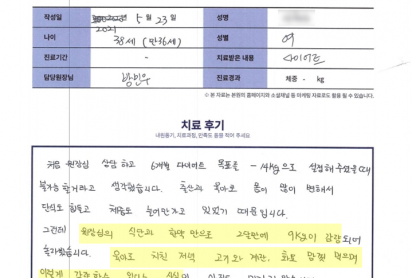 작성일 2021 년 5 월 23 일 성명
나이 38세 (만36세) 성별 여
진료기간 - 치료받은 내용 다이어트
담당원장님 진료경과 체중 - kg
※ 본 자료는 본원의 홈페이지와 소셜채널 등 마케팅 자료로도 활용 될 수 있습니다.
치료 후기
내원동기, 치료과정, 만족도 등을 적어 주세요
처음 원장님 상담 하고 6개월 다이어트 목표를 -14kg으로 설정해 주셨을때
불가능 할거라고 생각했습니다. 출산과 육아로 몸이 많이 변해서
단식도 힘들고 체중도 늘어만가고 있었기 때문입니다.
그런데 원장님의 식단과 한약 만으로 2달만에 9kg이 감량 되어
놀라웠습니다. 육아로 지친 저녁 고기와 계란, 채소